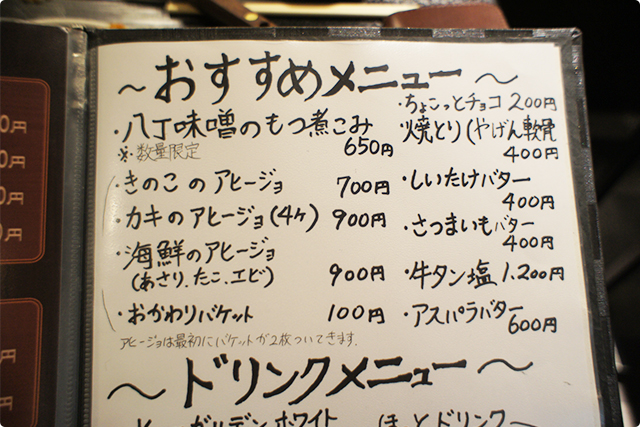 ～おすすめメニュー～
・八丁味噌のもつ煮こみ
※数量限定 650円
・きのこのアヒージョ 700円
・カキのアヒージョ(4ヶ) 900円
・海鮮のアヒージョ
(あさり、たこ、エビ) 900円
・おかわりバケット 100円
アヒージョは最初にバケットが2枚ついてきます.
・ちょこっとチョコ 200円
・焼とり(やげん軟骨
400円
・しいたけバター
400円
・さつまいもバター
400円
・牛タン塩 1,200円
・アスパラバター
600円
～ドリンクメニュー～
ガルデンホワイト
ほっとドリンク～
0円
0円
0円
0円
円
円